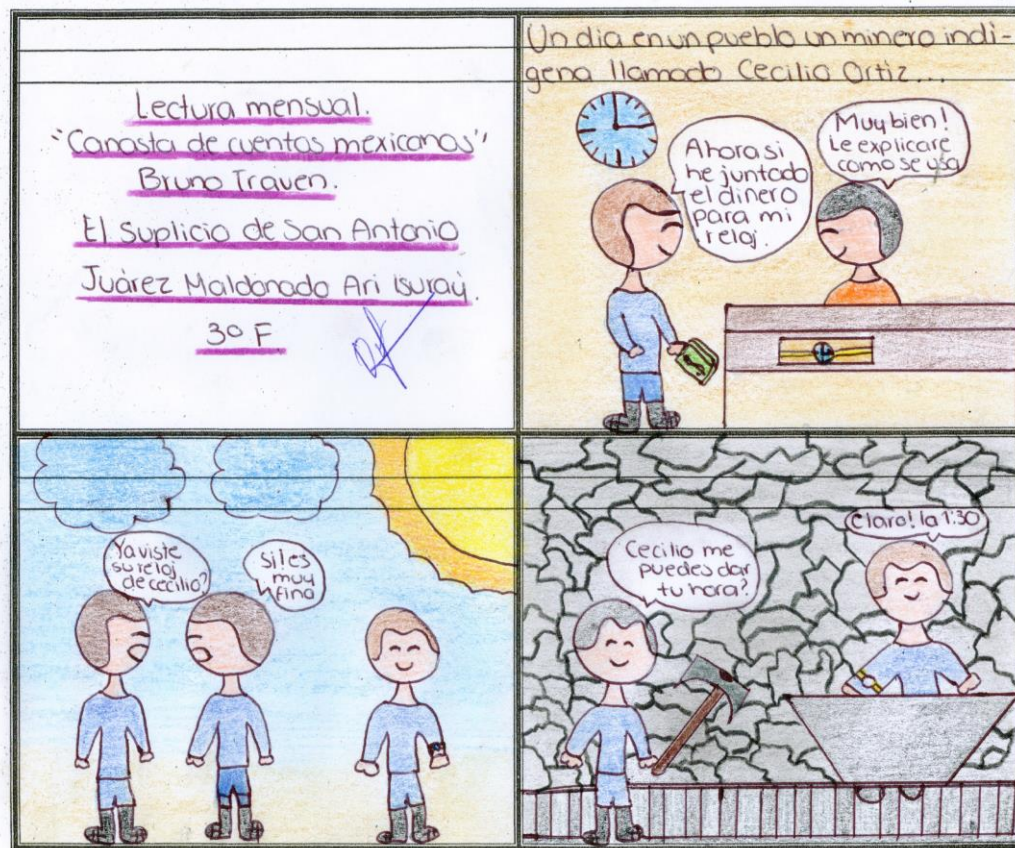 Lectura mensual.
"Canasta de cuentos mexicanos"
Bruno Traven.
El Suplicio de San Antonio
Juárez Maldonado Ari Isuray.
3º F
Un dia en un pueblo un minero indi-
gena llamado Cecilio Ortiz...
Ahora si
he juntado
el dinero
para mi
reloj.
Muy bien!
Le explicare
como se usa
Ya viste
su reloj
de cecilio?
Si! es
muy
fino
Cecilio me
puedes dar
tu hora?
Claro! la 1:30